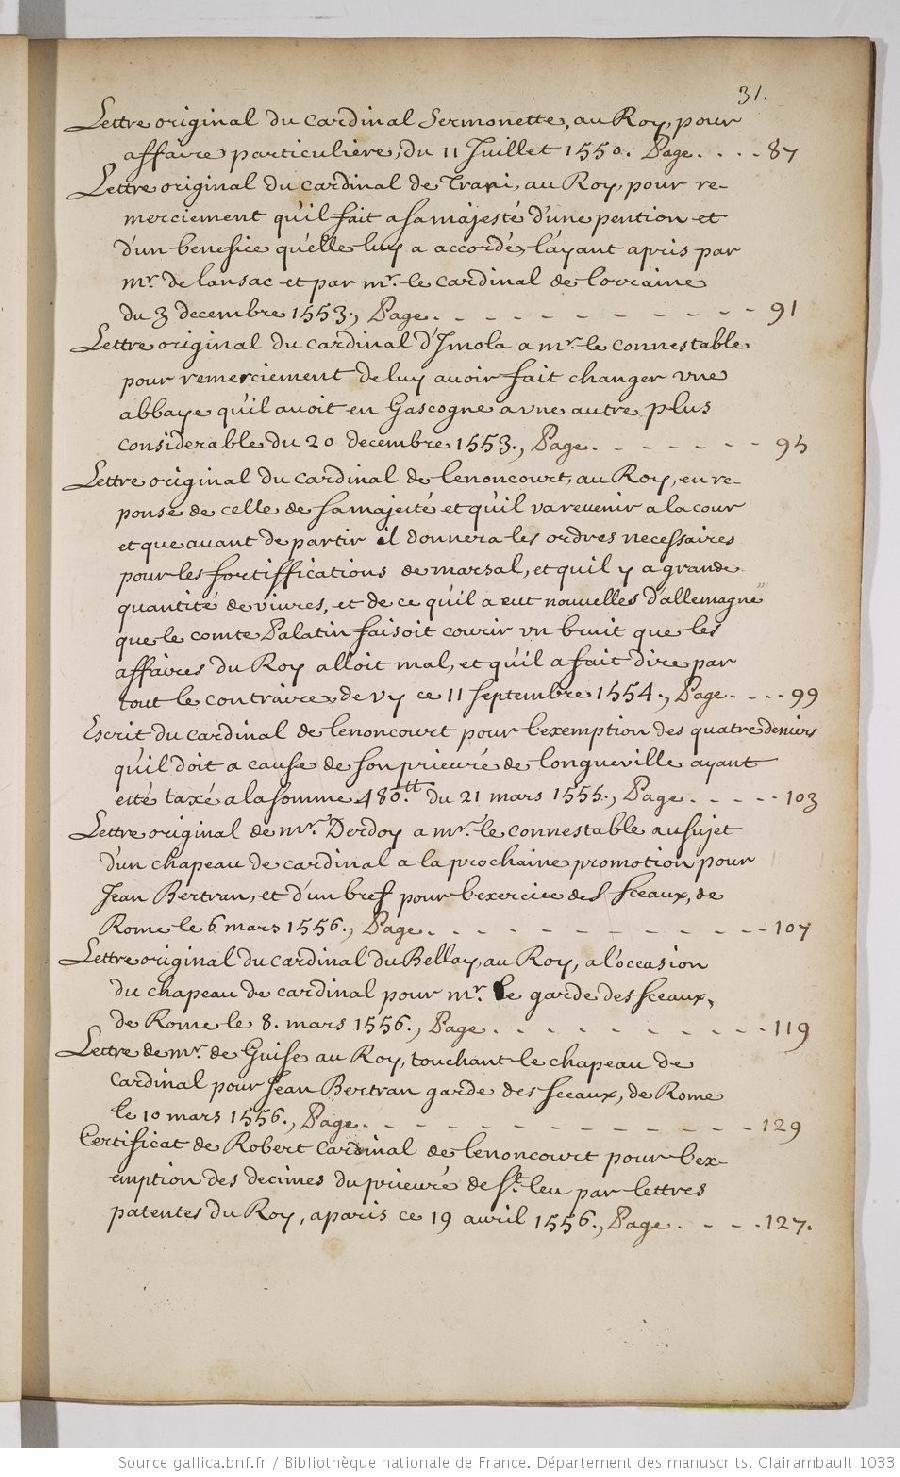 31.
Lettre original du cardinal Sermonette, au Roy, pour
affaire particuliere, du 11 Juillet 1550. Page. . . . 87
Lettre original du cardinal de Trani, au Roy, pour re-
merciement qu'il fait a sa majesté d'une pention et
d'un benefice qu'elle luy a accordé, l'ayant apris par
mr. de lansac et par mr. le cardinal de lorraine
du 3 decembre 1553., Page. - - - - - - - - - - 91
Lettre original du cardinal d'Imola a mr. le connestable,
pour remerciement de luy avoir fait changer vne
abbaye qu'il avoit en Gascogne a vne autre plus
considerable du 20 decembre 1553., Page. - - - - - - 95
Lettre original du cardinal de lenoncourt, au Roy, en re-
ponse de celle de sa majesté et qu'il va revenir a la cour
et que avant de partir il donnera les ordres necessaires
pour les fortiffications de marsal, et quil y a grande
quantité de vivres, et de ce qu'il a eut nouvelles d'allemagne
que le comte Palatin faisoit courir vn bruit que les
affaires du Roy alloit mal, et qu'il a fait dire par
tout le contraire, de vy ce 11 septembre 1554., Page. . - - 99
Escrit du cardinal de lenoncourt pour l'exemption des quatre deniers
qu'il doit a cause de son prieuré de longueville ayant
esté taxé a la somme 480.tt du 21 mars 1555., Page. - - - - 103
Lettre original de mr. Dordoy a mr. le connestable au sujet
d'un chapeau de cardinal a la prochaine promotion pour
Jean Bertran, et d'un bref pour l'exercice des sceaux, de
Rome le 6 mars 1556., Page. - - - - - - - - - - 107
Lettre original du cardinal du Bellay, au Roy, a l'occasion
du chapeau de cardinal pour mr. le garde des sceaux,
de Rome le 8. mars 1556., Page. . - - - - - - - 119
Lettre de mr. de Guise au Roy, touchant le chapeau de
cardinal pour Jean Bertran garde des sceaux, de Rome
le 10 mars 1556., Page. - - - - - - - - - - - - 129
Certificat de Robert Cardinal de lenoncourt pour l'ex-
emption des decimes du prieuré de St. leu par lettres
patentes du Roy, a paris ce 19 avril 1556., Page. . - - - 127.
Source gallica.bnf.fr / Bibliothèque nationale de France. Département des manuscrits. Clairambault 1033